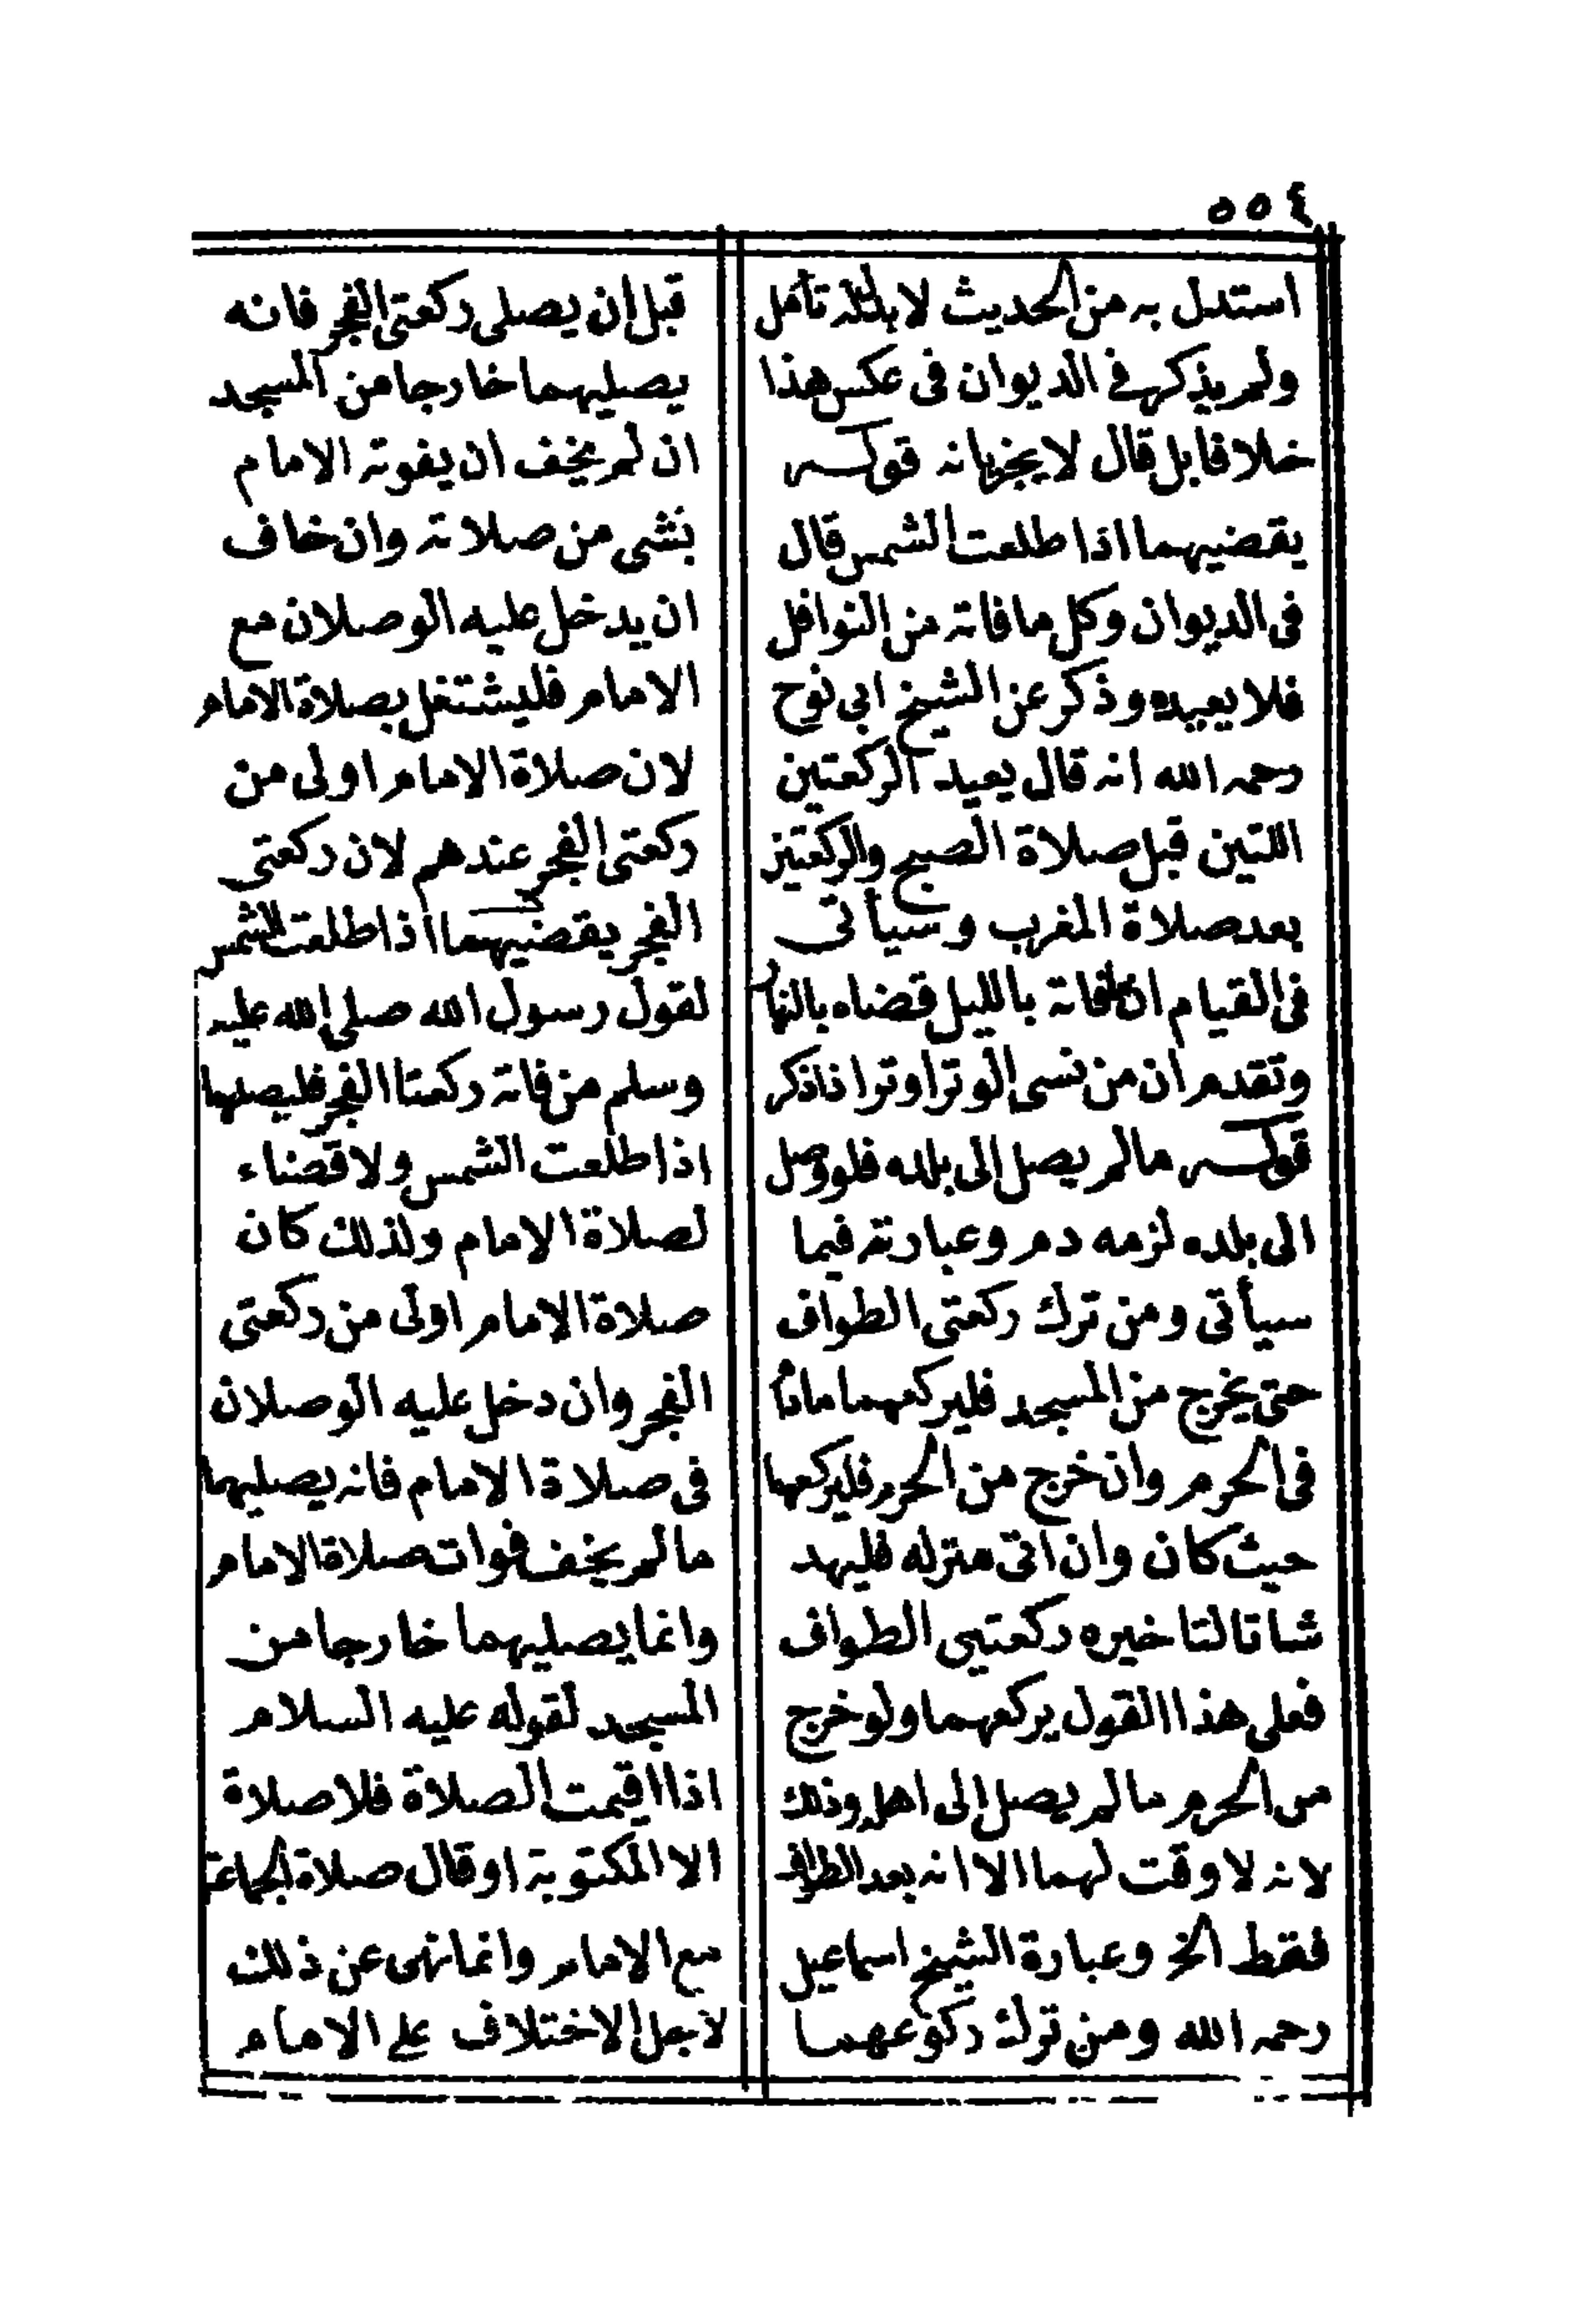 ٥٥٤
استدل به من الحديث لا تأمل
ولم يذكر في الديوان في عكس هذا
خلافا بل قال لا يجزيانه قوله
يقضيهما اذا طلعت الشمس قال
في الديوان وكل ما فاته من النوافل
فلا يعيده وذكر عن الشيخ ابي نوح
رحمه الله انه قال يعيد الركعتين
اللتين قبل صلاة الصبح والركعتين
بعد صلاة المغرب وسيأتي
في القيام ان فاته بالليل قضاه بالنهار
وتقدم ان من نسى الوتر اوترا ذا ذكر
قوله مالم يصل الى بلده فلو وصل
الى بلده لزمه دم وعبارته فيما
سيأتى ومن ترك ركعتى الطواف
حتى يخرج من المسجد فليركعهما مادام
في الحرم وان خرج من الحرم فليركعهما
حيث كان وان اتى منزله فليهد
شاتا لتاخيره ركعتيي الطواف
فعلى هذا القول يركعهما ولو خرج
من الحرم مالم يصل الى اهله وذلك
لانه لا وقت لهما الا انه بعد الطواف
فقط الخ وعبارة الشيخ اسماعيل
رحمه الله ومن ترك ركوعهما
قبل ان يصلى ركعتى الفجر فانه
يصليهما خارجا من المسجد
ان لم يخف ان يفوته الامام
بشى من صلاته وان خاف
ان يدخل عليه الوصلان مع
الامام فليشتغل بصلاة الامام
لان صلاة الامام اولى من
ركعتى الفجر عندهم لان ركعتى
الفجر يقضيهما اذا طلعت الشمس
لقول رسول الله صلى الله عليه
وسلم من فاته ركعتا الفجر فليصلهما
اذا طلعت الشمس ولا قضاء
لصلاة الامام ولذلك كان
صلاة الامام اولى من ركعتى
الفجر وان دخل عليه الوصلان
في صلاة الامام فانه يصليهما
مالم يخف فوات صلاة الامام
وانما يصليهما خارجا من
المسجد لقوله عليه السلام
اذا اقيمت الصلاة فلا صلاة
الا المكتوبة او قال صلاة الجماعة
مع الامام وانما نهى عن ذلك
لاجل الاختلاف على الامام